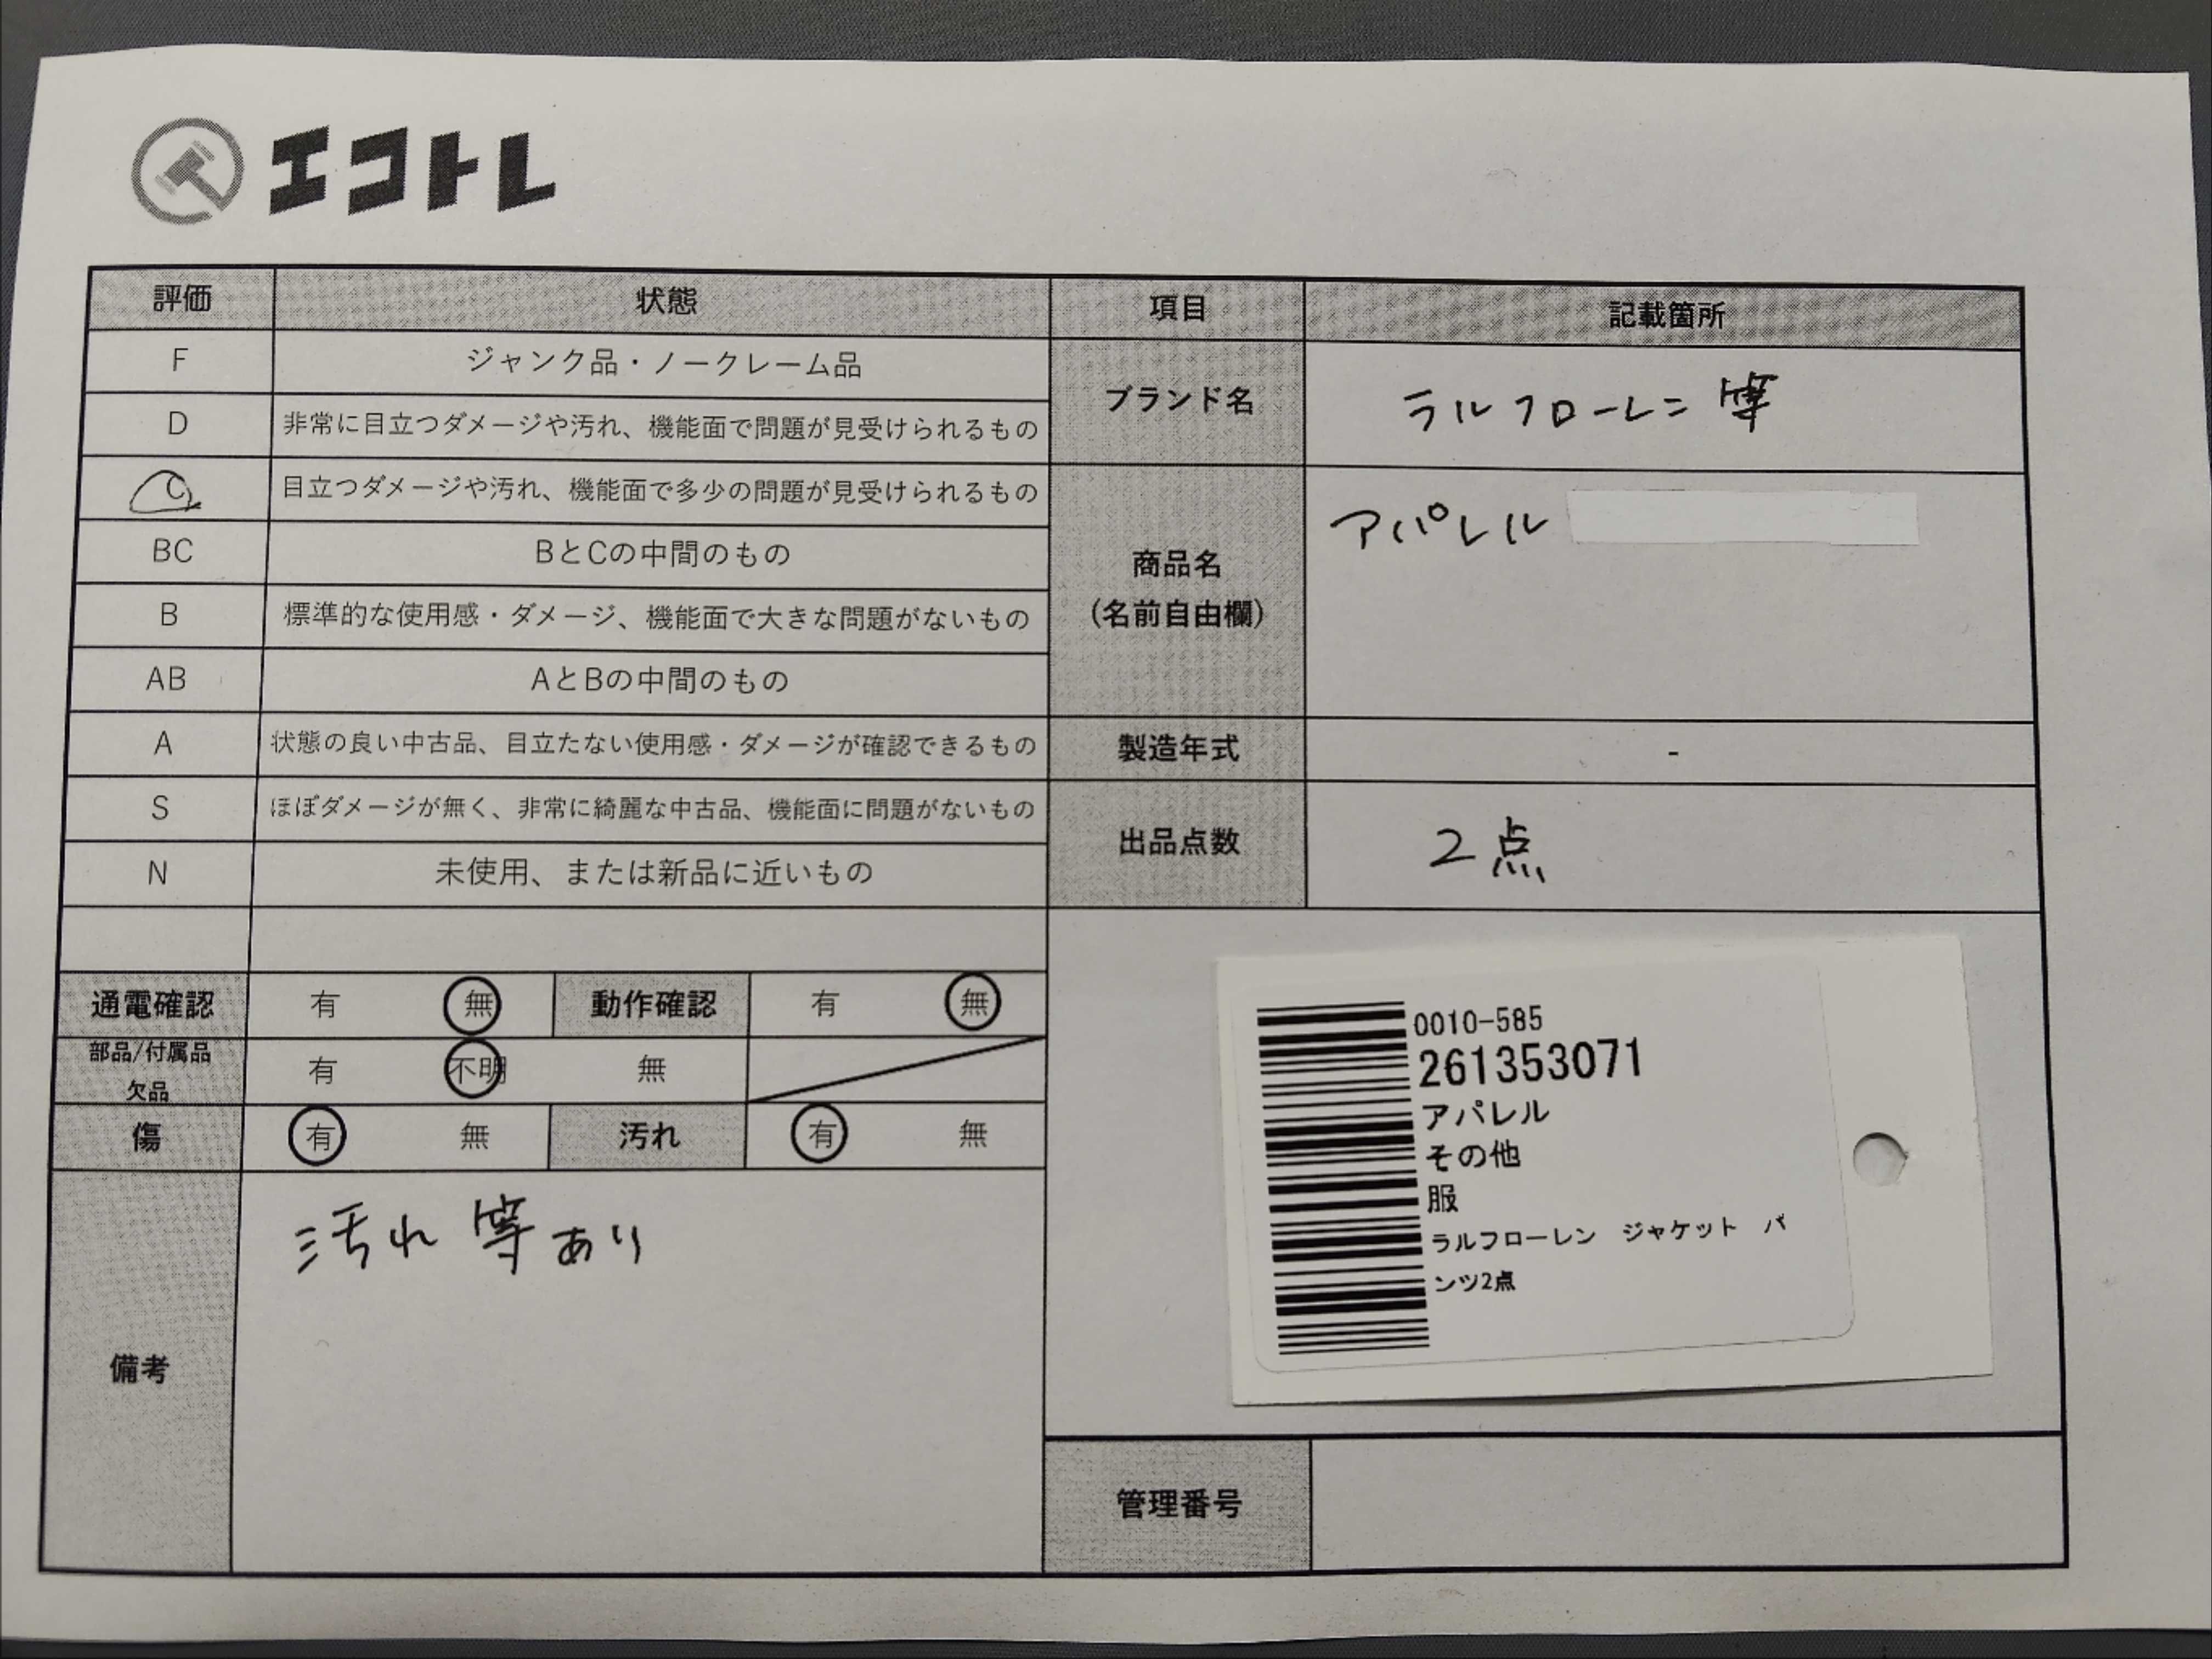 エコトレ
評価 状態 項目 記載箇所
F ジャンク品・ノークレーム品
D 非常に目立つダメージや汚れ、機能面で問題が見受けられるもの
C 目立つダメージや汚れ、機能面で多少の問題が見受けられるもの
BC BとCの中間のもの
B 標準的な使用感・ダメージ、機能面で大きな問題がないもの
AB AとBの中間のもの
A 状態の良い中古品、目立たない使用感・ダメージが確認できるもの
S ほぼダメージが無く、非常に綺麗な中古品、機能面に問題がないもの
N 未使用、または新品に近いもの
通電確認 有 無 動作確認 有 無
部品/付属品
欠品 有 不明 無
傷 有 無 汚れ 有 無
備考 汚れ等あり
ブランド名 ラルフローレン等
商品名
(名前自由欄) アパレル
製造年式 -
出品点数 2点
0010-585
261353071
アパレル
その他
服
ラルフローレン ジャケット パ
ンツ2点
管理番号